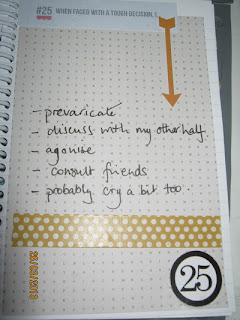 #25 WHEN FACED WITH A TOUGH DECISION, I
- prevaricate
- discuss with my other half
- agonise
- consult friends
- probably cry a bit too.
25